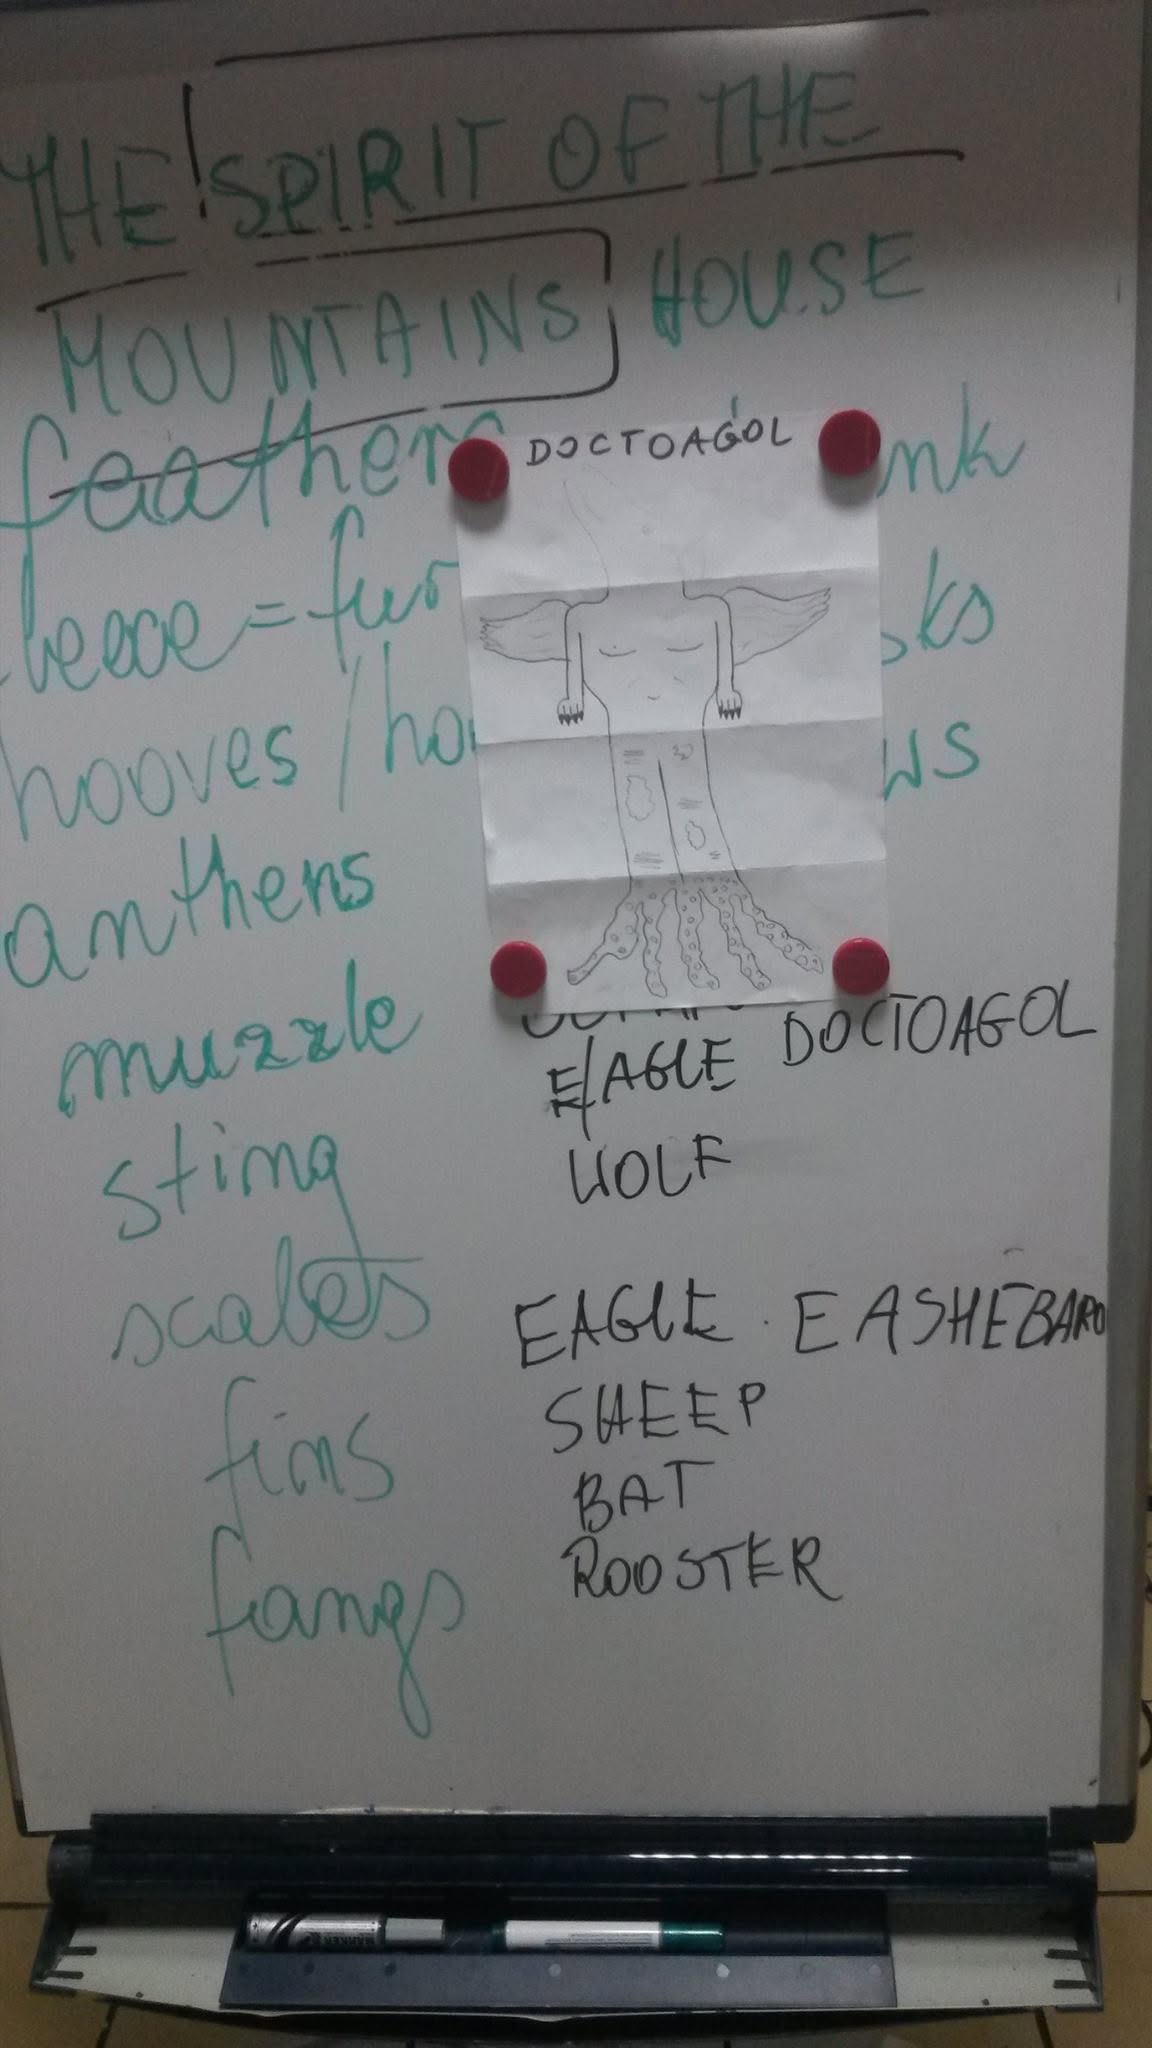 THE SPIRIT OF THE
MOUNTAINS HOUSE
feathers
DOCTOAGOL
= fur
hooves /
anthens
muzzle
sting
scales
fins
fangs
EAGLE DOCTOAGOL
WOLF
EAGLE. EASHEBARO
SHEEP
BAT
ROOSTER